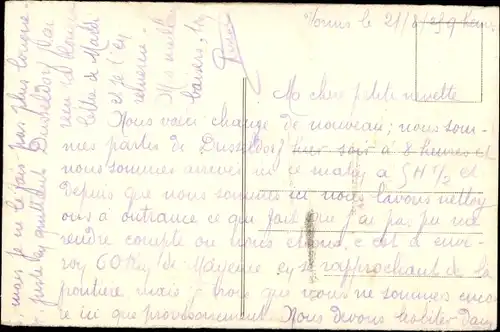 le 21/8/25 9 heures
Ma chère petite nenette
Nous voici changé de nouveau; nous som-
mes partis de Dusseldorf hier soir à 8 heures et
nous sommes arrivés ici ce matin à 5H 1/2 et
depuis que nous sommes ici nous lavons nettoy
ons à outrance ce qui fait que j'ai pas pu me
rendre compte où nous étions, c'est à envi-
ron 60 Km de Mayence en se rapprochant de la
frontière mais je crois que nous ne sommes enco-
re ici que provisoirement. Nous devons habiter dans
mais je ne le fais pas plus longue
juste en quittant Dusseldorf j'ai
reçu une
lettre de
et je t'en
remercie
baisers